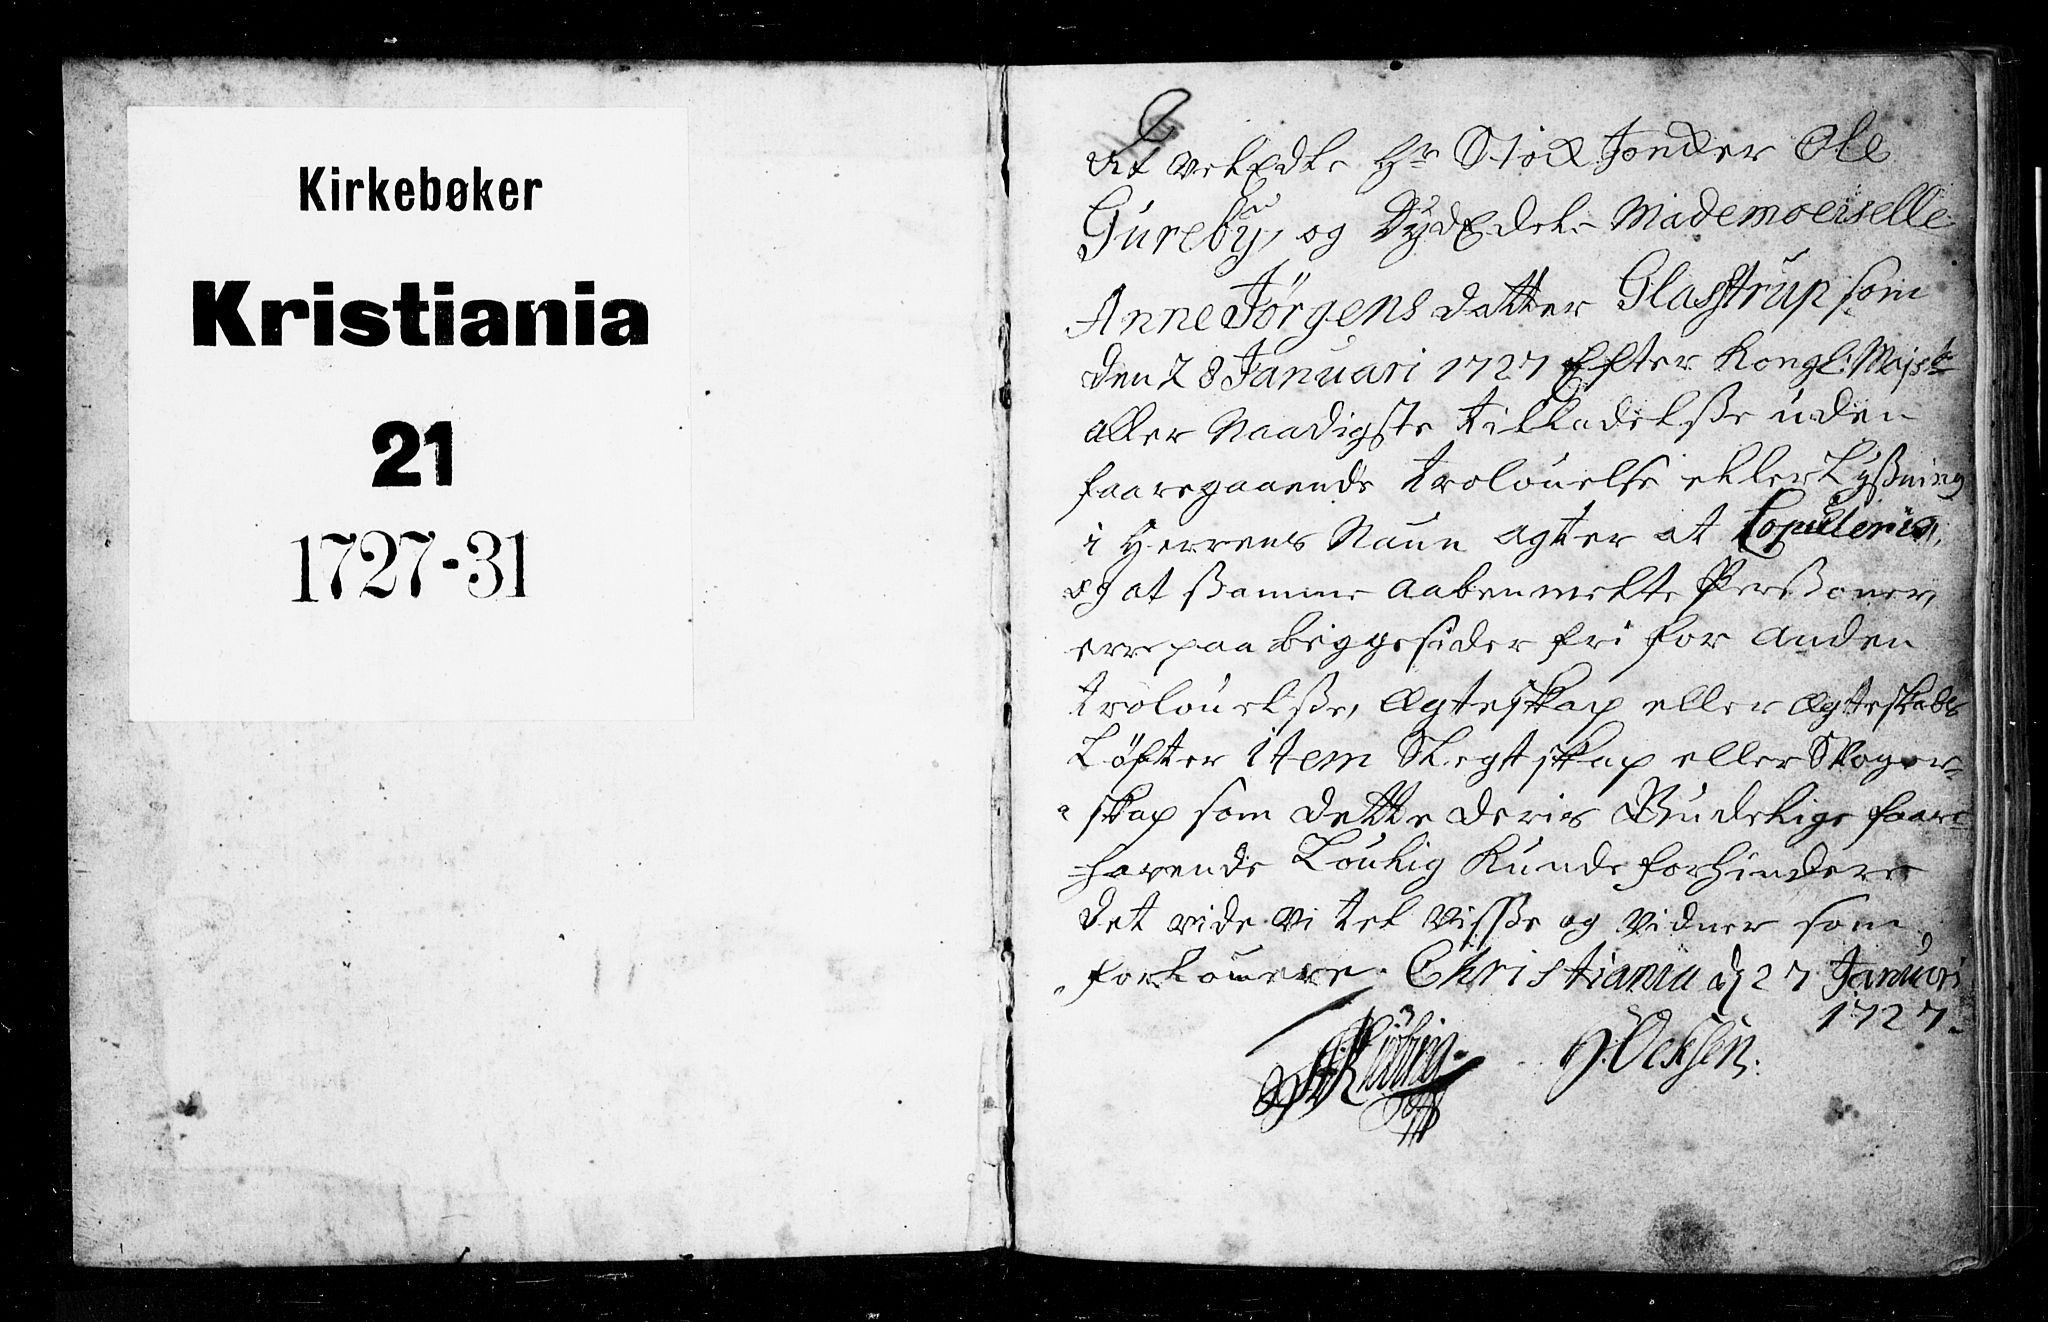 Kirkebøker
Kristiania
21
1727-31
At velEdle Hr Stöck Jonder Ole
Gureby, og DydEdele Mademoeiselle
Anne Jörgens datter Glasstrup som
den 28 Januari 1727 Efter Kongl: Majst
aller Naadigste tilladelsse uden
faaregaaende trolouelse eller Lyssning
i Herrens Naun agter at Copuleris,
og at ssamme aabenmelte Perssoner,
erre paa beggesider fri for anden
trolouelsse, Ægteskap eller Ægteskabs
Löfter item Slegtskap eller Svoger-
skap som dette deris Gudelige faare-
havende Loulig Kunde forhindere
det vide vi til visse og vidner som
forlouere. Christiania d 27 Januari
1727.